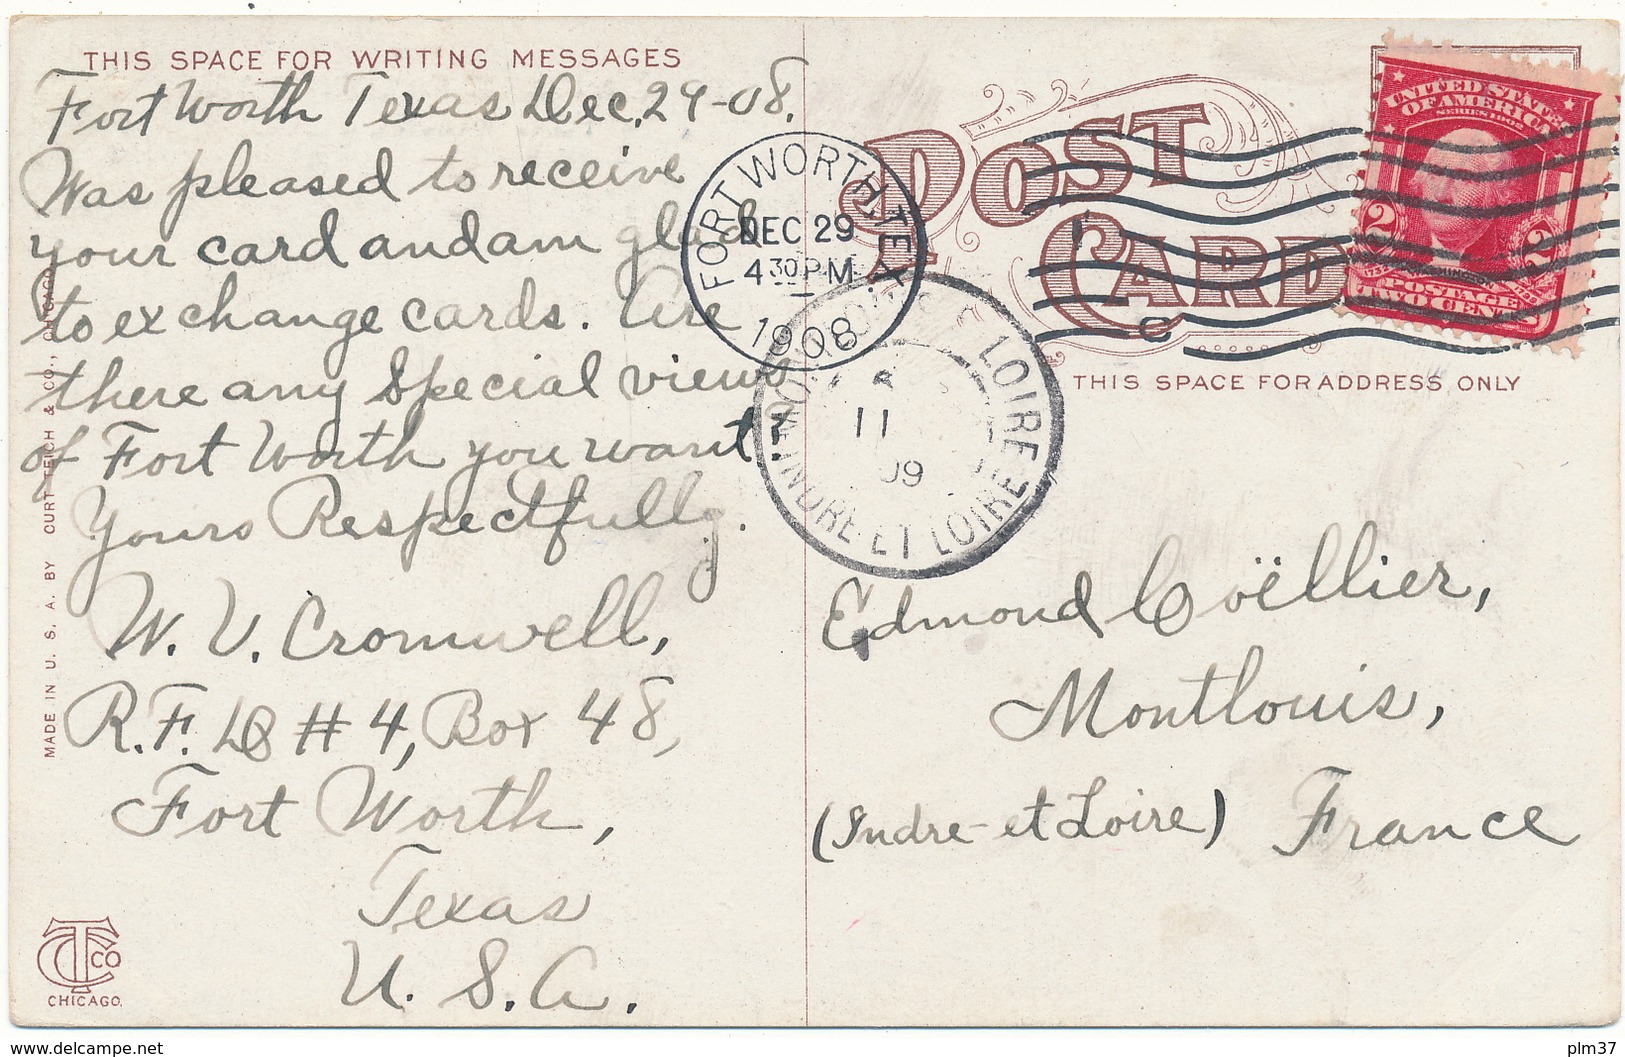 THIS SPACE FOR WRITING MESSAGES
Fort Worth Texas Dec. 29-08.
Was pleased to receive
your card and am glad
to exchange cards. Are
there any Special views
of Fort Worth you want?
Yours Respectfully.
W. V. Cromwell,
R.F.D # 4, Box 48,
Fort Worth,
Texas
U. S. A.
MADE IN U. S. A. BY CURT TEICH & CO., CHICAGO.
CTCO
CHICAGO.
FORT WORTH, TEX.
DEC 29
4 30 PM
1908
LOIRE
11
09
INDRE-ET-LOIRE
POST
CARD
1
C
UNITED STATES
OF AMERICA
SERIES 1902
2 2
1732 WASHINGTON 1799
POSTAGE
TWO CENTS
THIS SPACE FOR ADDRESS ONLY
Edmond Coëllier,
Montlouis,
(Indre-et Loire) France
www.delcampe.net
plm37